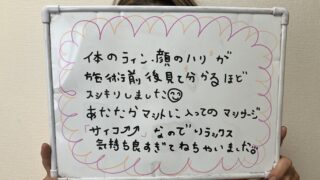 体のライン・顔のハリが
施術前後見て分かるほど
スッキリしました
あたたかマットに入ってのマッサージ
「サイコ↗↗」なのでリラックス
気持ち良すぎてねちゃいました。